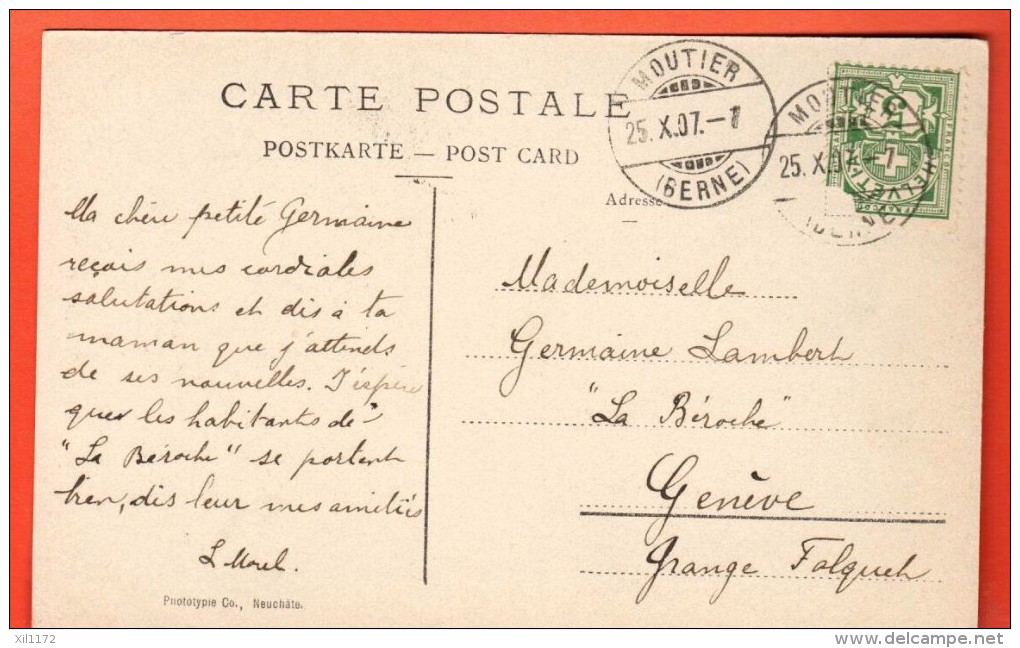 CARTE POSTALE
POSTKARTE — POST CARD
MOUTIER
25. X.07.-1
(BERNE)
25. X.07.-1
HELVETIA
5
Adresse
Ma chère petite Germaine
reçois mes cordiales
salutations et dis à ta
maman que j'attends
de ses nouvelles. J'espère
que les habitants de
"La Béroche" se portent
bien, dis leur mes amitiés
L Morel.
Mademoiselle
Germaine Lambert
"La Béroche"
Genève
Grange Falquet
Phototypie Co., Neuchâte.
xil1172
delcampe.net